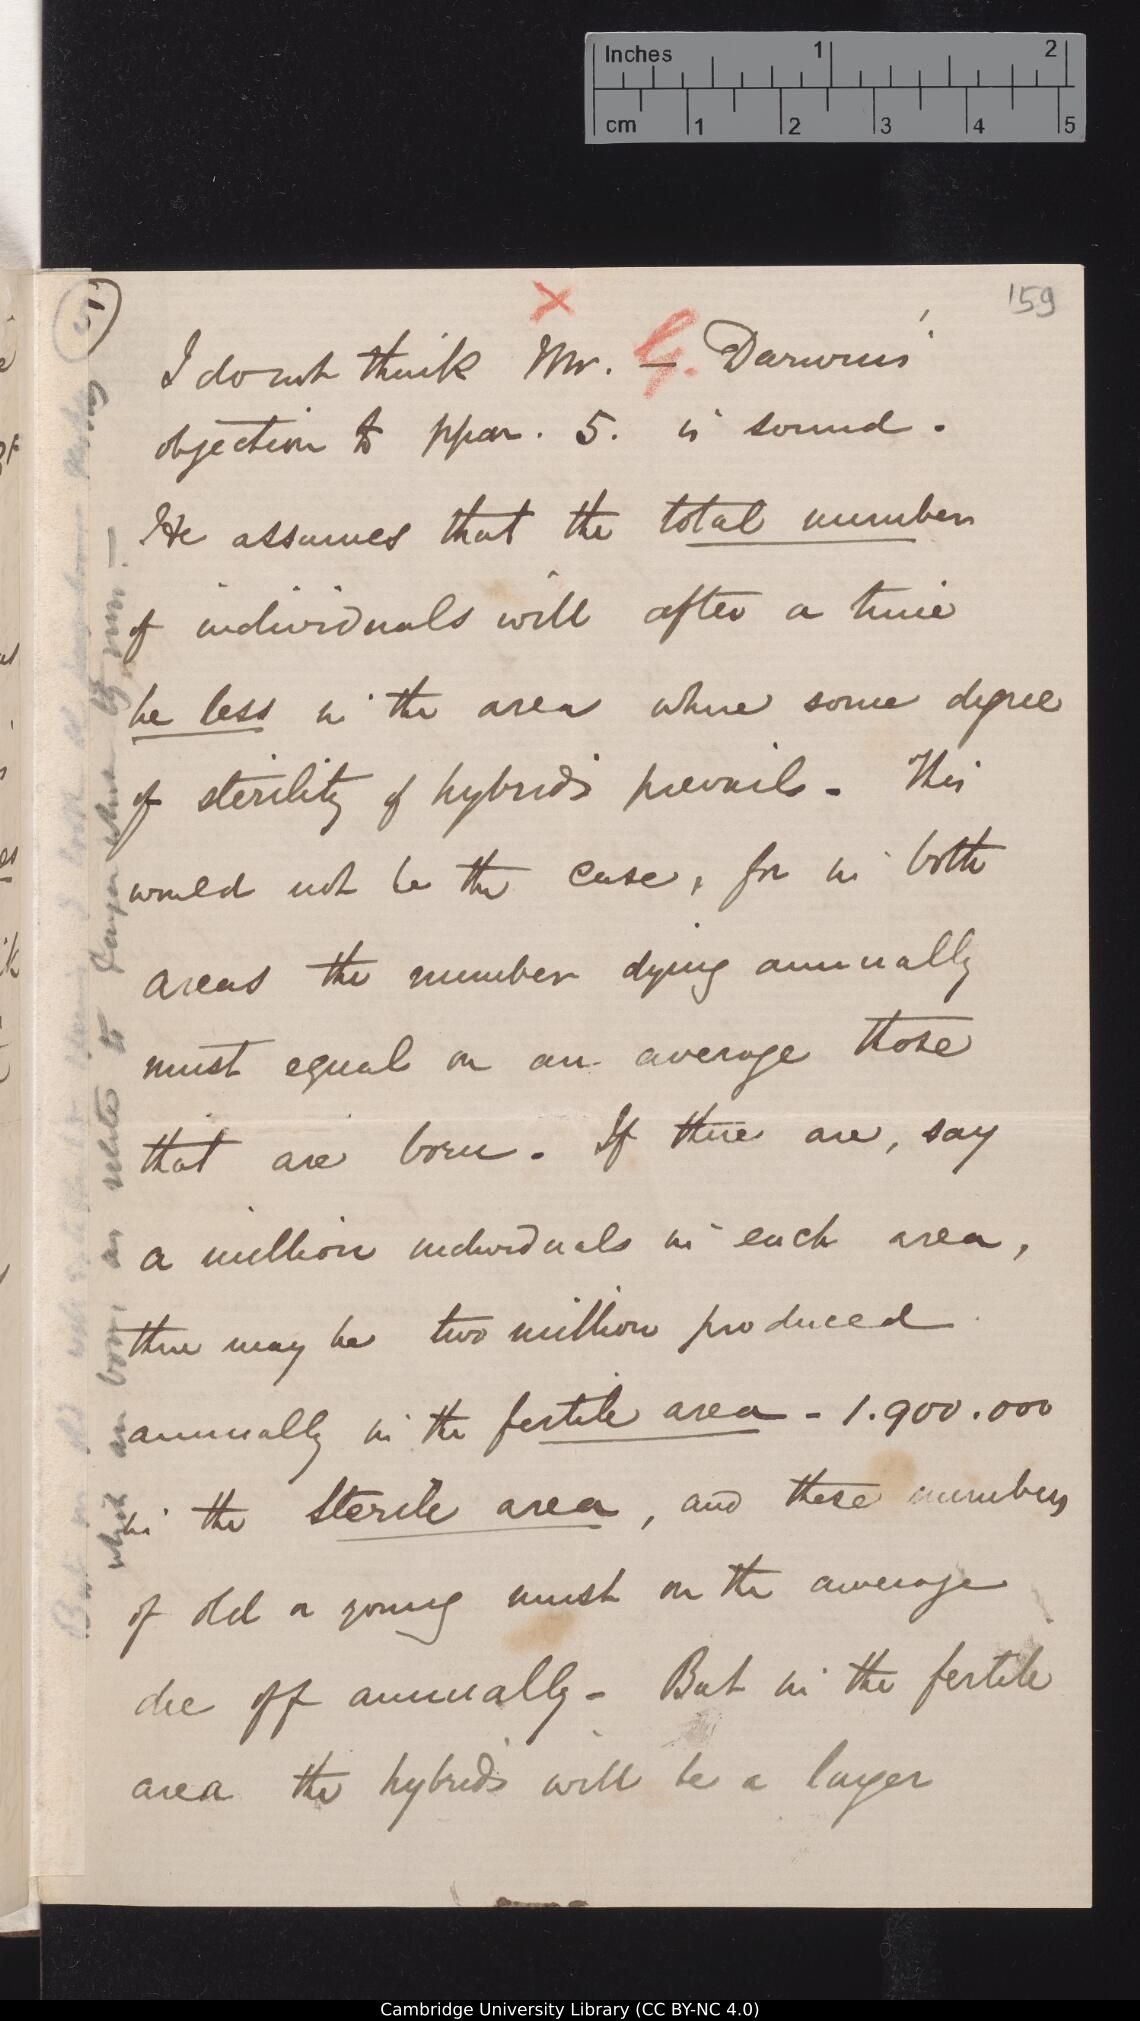 Inches 1 2
cm 1 2 3 4 5
159
5
I do not think Mr. G. Darwin's
objection to ppar. 5. is sound.
He assumes that the total number
of individuals will after a time
be less in the area where some degree
of sterility of hybrids prevails. This
would not be the case, for in both
areas the number dying annually
must equal on an average those
that are born. If there are, say
a million individuals in each area,
there may be two million produced
annually in the fertile area - 1.900.000
in the sterile area, and these numbers
of old or young must on the average
die off annually - But in the fertile
area the hybrids will be a larger
which are born, as relates to larger when by man —
Cambridge University Library (CC BY-NC 4.0)